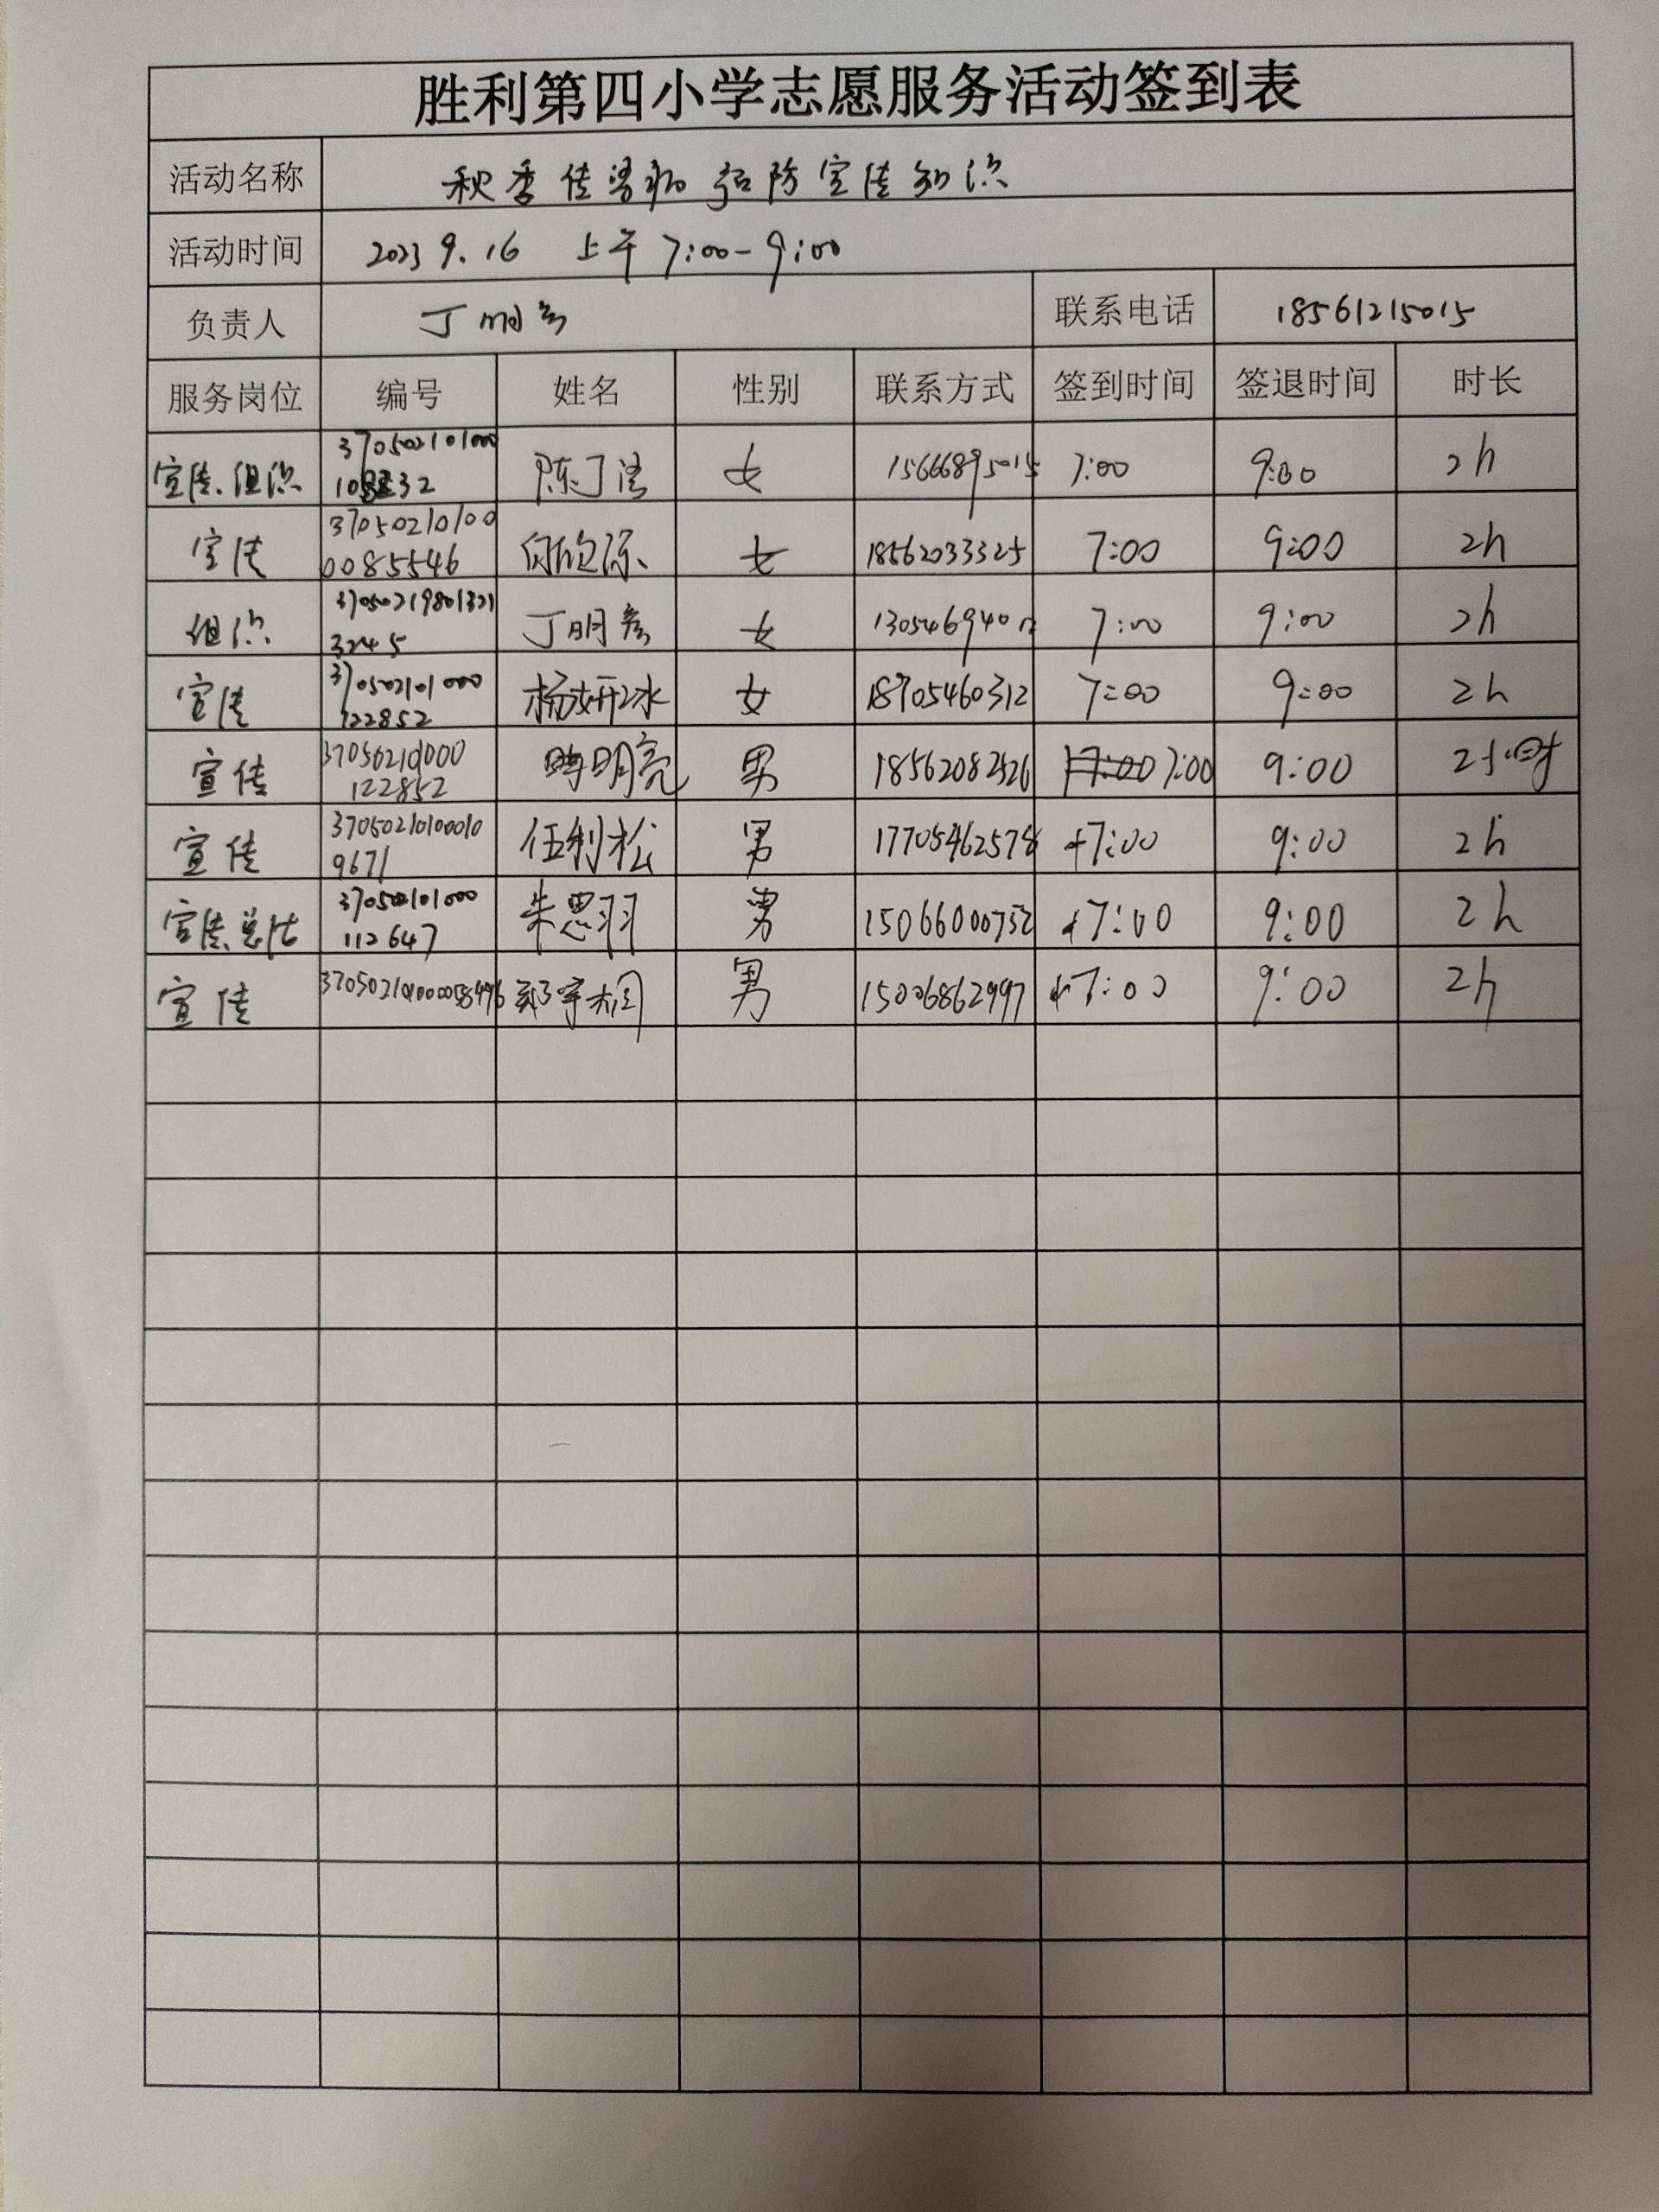 胜利第四小学志愿服务活动签到表
活动名称 秋季传染病预防宣传知识
活动时间 2023 9.16 上午 7:00-9:00
负责人 丁明彦 联系电话 18561215015
服务岗位 编号 姓名 性别 联系方式 签到时间 签退时间 时长
宣传.组织 370502101000 女 15666895015 7:00 9:00 2h
宣传 37050210100 0085546 女 18562033325 7:00 9:00 2h
组织 丁明彦 女 7:00 9:00 2h
宣传 370502101000 122852 杨妍冰 女 18705460312 7:00 9:00 2h
宣传 122852 明亮 男 18562082526 7:00 9:00 2小时
宣传 37050210100010 9671 伍利松 男 17705462578 7:00 9:00 2h
宣传.总结 370502101000 112647 朱思羽 男 15066000752 7:00 9:00 2h
宣传 男 15006862997 7:00 9:00 2h